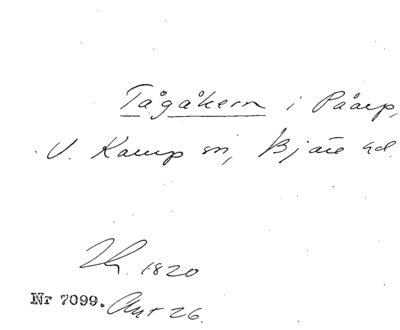 Tågåkern i Påarp,
V. Karup sn, Bjäre hd.
1820
Nr 7099. Ant 26.